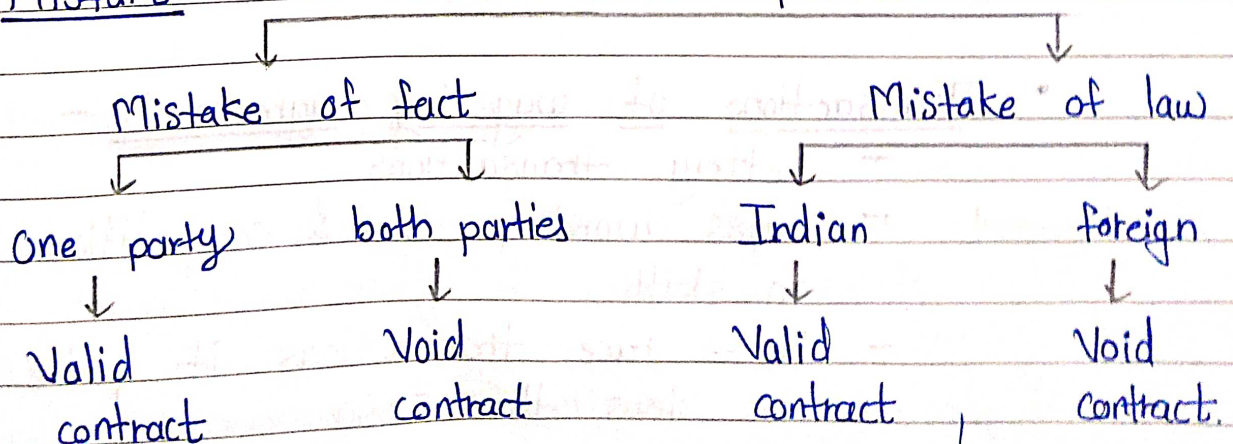 Mistake of fact Mistake of law
One party both parties Indian foreign
Valid Void Valid Void
contract contract contract contract.